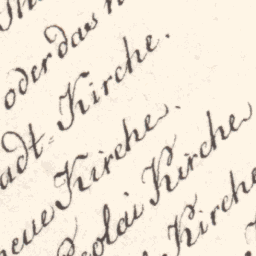 oder das
adt= Kirche.
neue Kirche.
colai Kirche
Kirche